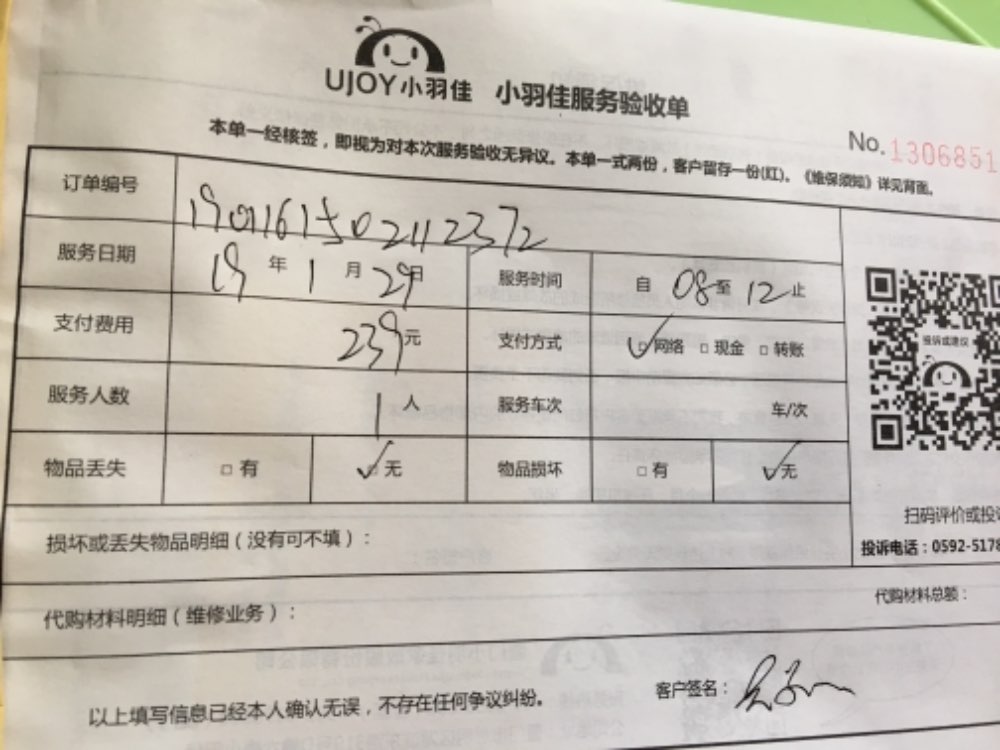 UJOY小羽佳 小羽佳服务验收单
No.1306851
本单一经核签，即视为对本次服务验收无异议。本单一式两份，客户留存一份(红)。《维保须知》详见背面。
订单编号 1901161502112372
服务日期 19年1月29日 服务时间 自08至12止
支付费用 239元 支付方式 ☑网络 □现金 □转账
服务人数 1人 服务车次 车/次
物品丢失 □有 ☑无 物品损坏 □有 ☑无
投诉或建议
扫码评价或投诉
投诉电话：0592-5178
损坏或丢失物品明细（没有可不填）：
代购材料明细（维修业务）： 代购材料总额：
以上填写信息已经本人确认无误，不存在任何争议纠纷。 客户签名：